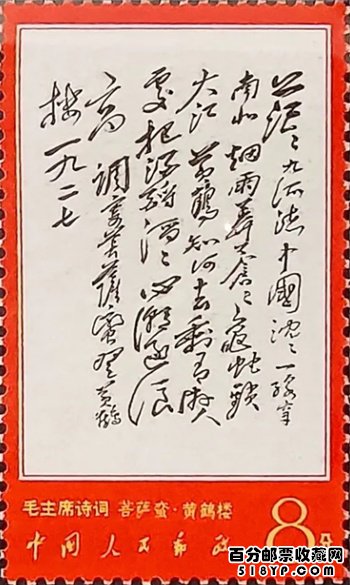 茫々九派流中國沈々一線穿
南北烟雨莽蒼々龜蛇鎖
大江黄鶴知何去剩有游人
處把酒酹滔々心潮逐浪
高 調寄菩薩蠻登黄鶴
樓一九二七
毛主席诗词 菩萨蛮·黄鹤楼
中国人民邮政
8分
百分邮票收藏网
518YP.com